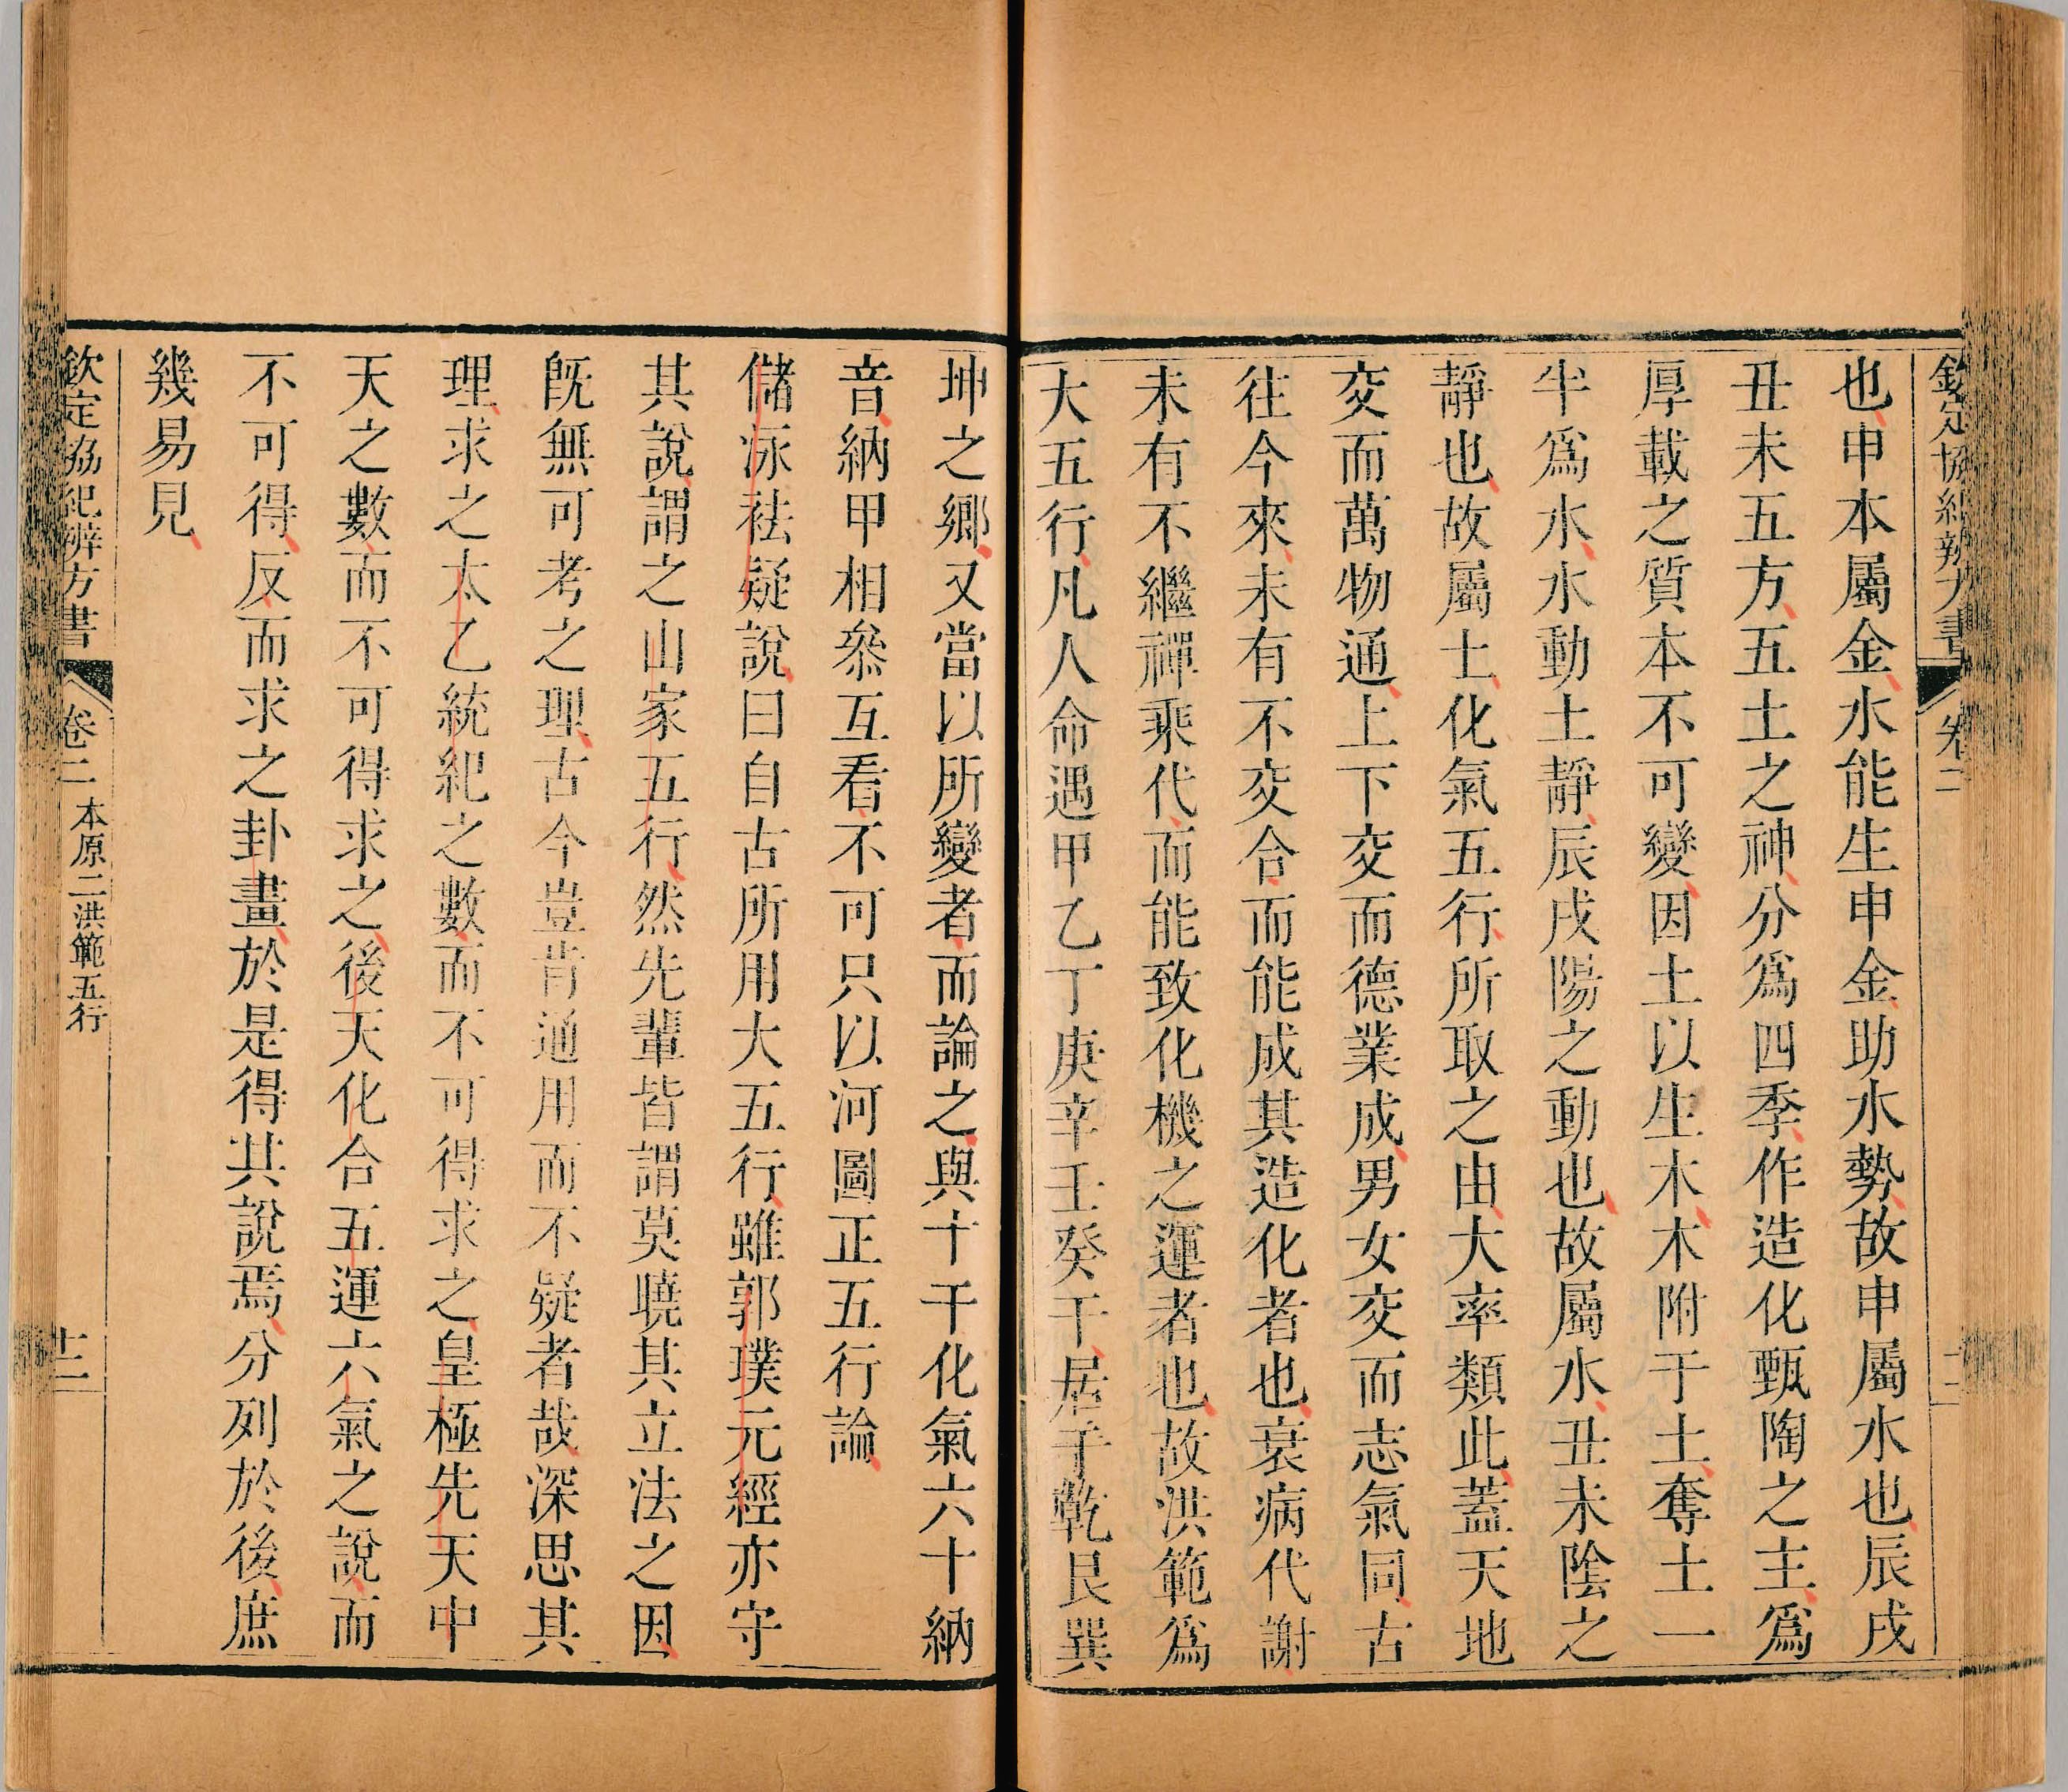 欽定協紀辨方書 卷二
也申本屬金水能生申金助水勢故申屬水也辰戌
丑未五方五土之神分爲四季作造化甄陶之主爲
厚載之質本不可變因土以生木木附于土奪土一
半爲水水動土靜辰戌陽之動也故屬水丑未陰之
靜也故屬土化氣五行所取之由大率類此蓋天地
交而萬物通上下交而德業成男女交而志氣同古
往今來未有不交合而能成其造化者也衰病代謝
未有不繼禪乘代而能致化機之運者也故洪範爲
大五行凡人命遇甲乙丁庚辛壬癸干居子乾艮巽
坤之鄉又當以所變者而論之與十干化氣六十納
音納甲相叅互看不可只以河圖正五行論
儲泳袪疑說曰自古所用大五行雖郭璞元經亦守
其說謂之山家五行然先輩皆謂莫曉其立法之因
旣無可考之理古今豈肯通用而不疑者哉深思其
理求之太乙統紀之數而不可得求之皇極先天中
天之數而不可得求之後天化合五運六氣之說而
不可得反而求之卦畫於是得其說焉分列於後庶
幾易見
欽定協紀辨方書 卷二 本原二洪範五行 十二